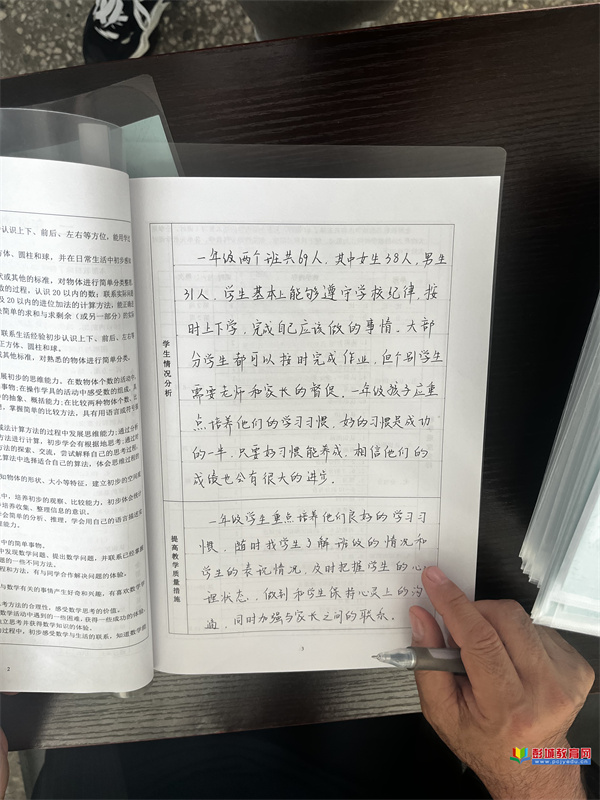 认识上下、前后、左右等方位，能用学过
方体、圆柱和球，并在日常生活中初步感
状或其他的标准，对物体进行简单分类整
数的过程，认识20以内的数；联系实际问题
及20以内的进位加法的计算方法，能正确
决简单的求和与求剩余（或另一部分）的实际
联系生活经验初步认识上下、前后、左右等
正方体、圆柱和球。
或其他标准，对熟悉的物体进行简单分类。
展初步的思维能力，在数物体个数的活动中，
事物；在操作学具的活动中感受数的组成，具
的抽象、概括能力；在比较两种物体个数、比
，掌握简单的比较方法，具有用语言或符号表
减法计算方法的过程中发展思维能力；通过分
方法进行计算，初步学会有根据地思考；通过对
方法的探索、交流，尝试解释自己的思考过程，
算法中选择适合自己的算法，体会思维过程的
知物体的形状、大小等特征，建立初步的空间观
中，培养初步的观察、比较能力，初步体会统计
中培养收集、整理信息的意识。
学会简单的分析、推理，学会用自己的语言描述
维能力。
中的简单事物。
中发现数学问题、提出数学问题，并联系已的掌握
题的一些不同方法。
程和方法，有与同学合作解决问题的体验。
与数学有关的事情产生好奇和兴趣，有喜欢数学
考方法的合理性，感受数学思考的价值。
数学活动中遇到的一些困难，获得一些成功的体验，
独立思考并获得数学知识的体验。
过程中，初步感受数学与生活的联系，知道数学能
2
学生情况分析
一年级两个班共69人，其中女生38人，男生
31人，学生基本上能够遵守学校纪律，按
时上下学，完成自己应该做的事情。大部
分学生都可以按时完成作业，但个别学生
需要老师和家长的督促。一年级孩子应重
点培养他们的学习习惯，好的习惯是成功
的一半，只要好习惯能养成，相信他们的
成绩也会有很大的进步。
提高教学质量措施
一年级学生重点培养他们良好的学习习
惯，随时找学生了解班级的情况和
学生的表现情况，及时把握学生的心
理状态，做到和学生保持心灵上的沟
通，同时加强与家长之间的联系。
3
彭城教育网
www.pcjyedu.cn